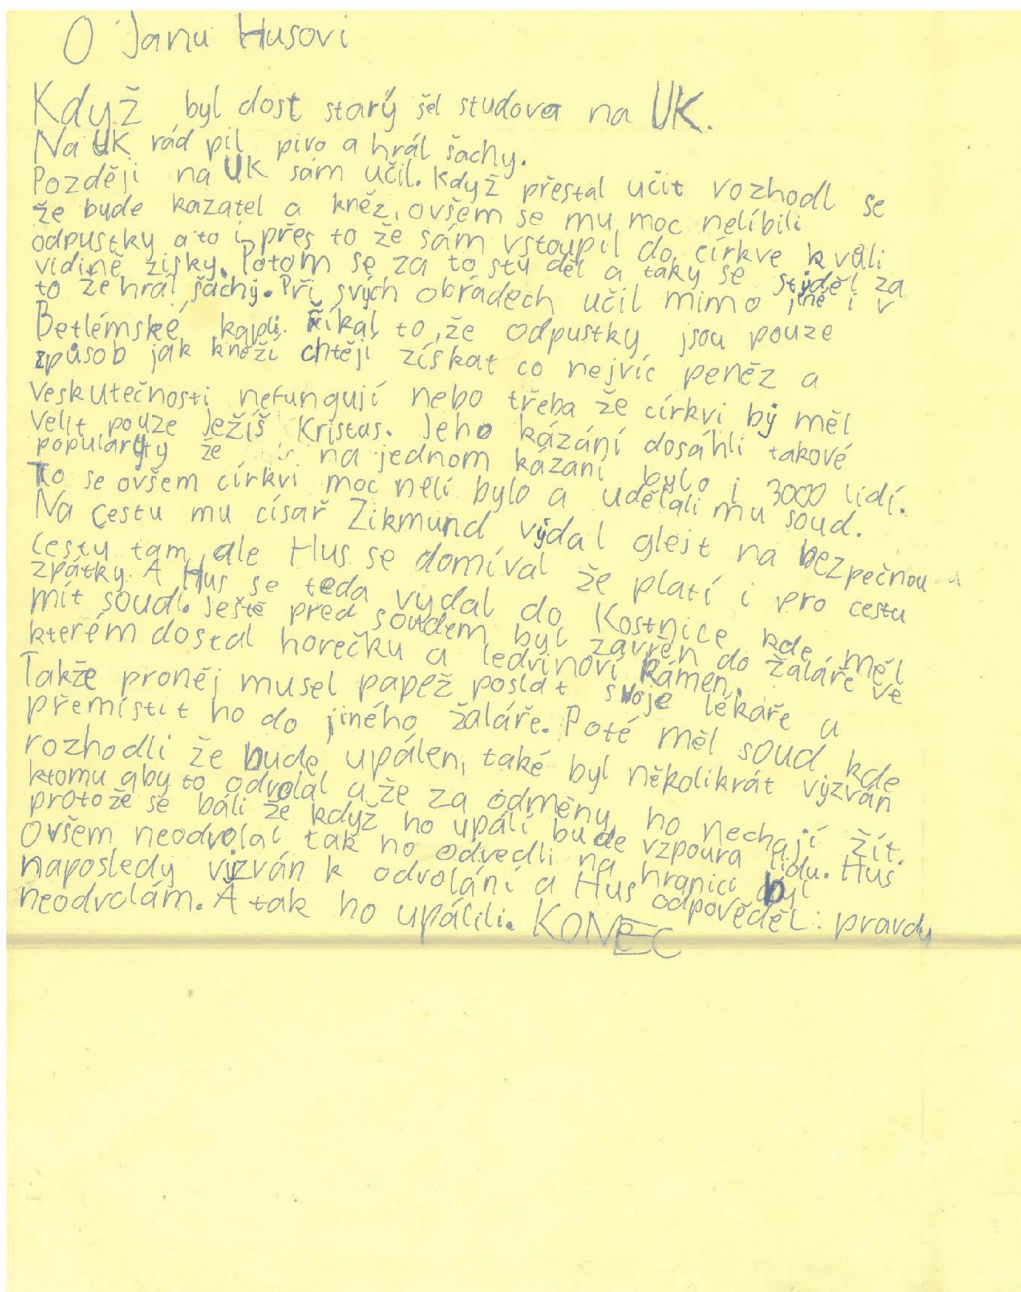 O Janu Husovi
Když byl dost starý šel studova na UK.
Na UK rád pil pivo a hrál šachy.
Později na UK sám učil. Když přestal učit vozhodl se
že bude kazatel a kněz, ovšem se mu moc nelíbili
odpustky a to i přes to že sám vstoupil do církve kvůli
vidině zisky. Potom se za to styděl a taky se styděl za
to že hrál šachy. Při svých obřadech učil mimo jiné i v
Betlémské kapli. Říkal to, že odpustky jsou pouze
způsob jak kněží chtějí získat co nejvíc peněz a
veskutečnosti nefungují nebo třeba že církvi by měl
velit pouze Ježíš Kristas. Jeho kázání dosáhli takové
popularyty že na jednom kázání bylo i 3000 lidí.
To se ovšem církvi moc nelí bylo a udělali mu soud.
Na cestu mu císař Zikmund vydal glejt na bezpečnou
cestu tam, ale Hus se domíval že platí i pro cestu
zpátky. A Hus se teda vydal do Kostnice kde měl
mít soud. Ještě před soudem byl zavřen do žaláře ve
kterém dostal horečku a ledvinoví kámen.
Takže proněj musel papež poslat svoje lékáře a
přemístit ho do jiného žaláře. Poté měl soud kde
rozhodli že bude upálen, také byl několikrát vyzván
ktomu aby to odvolal a že za odměnu ho nechají žít.
protože se báli že když ho upálí bude vzpoura lidu. Hus
Ovšem neodvolal tak ho odvedli na hranici byl
naposledy vizván k odvolání a Hus odpověděl: pravdy
neodvolám. A tak ho upálili. KONEC